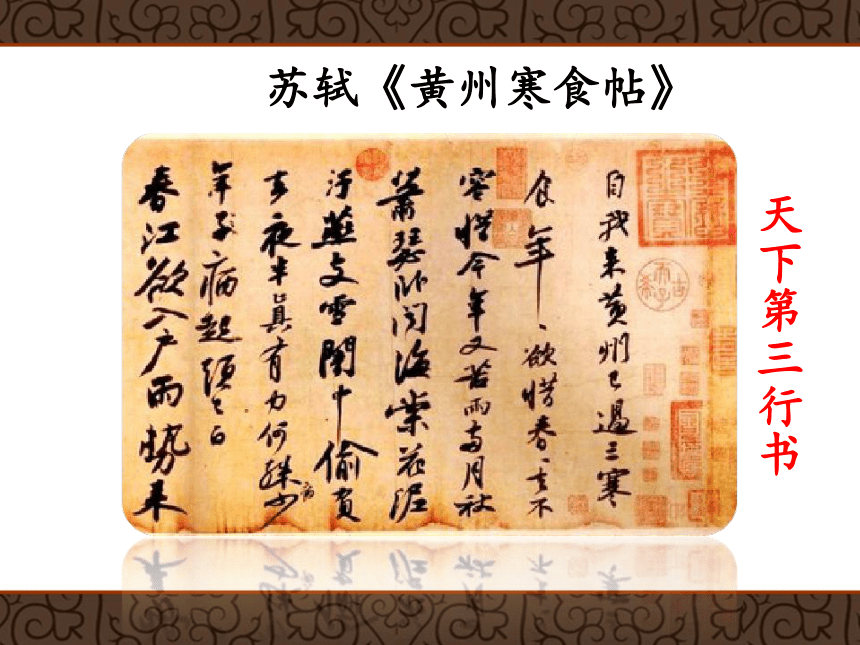 苏轼《黄州寒食帖》
天下第三行书
自我来黄州已過三寒
食年〻欲惜春〻去不
容惜今年又苦雨兩月秋
蕭瑟卧聞海棠花泥
汙燕支雪闇中偷負
去夜半真有力何殊少
年子病起頭已白
春江欲入户雨勢来